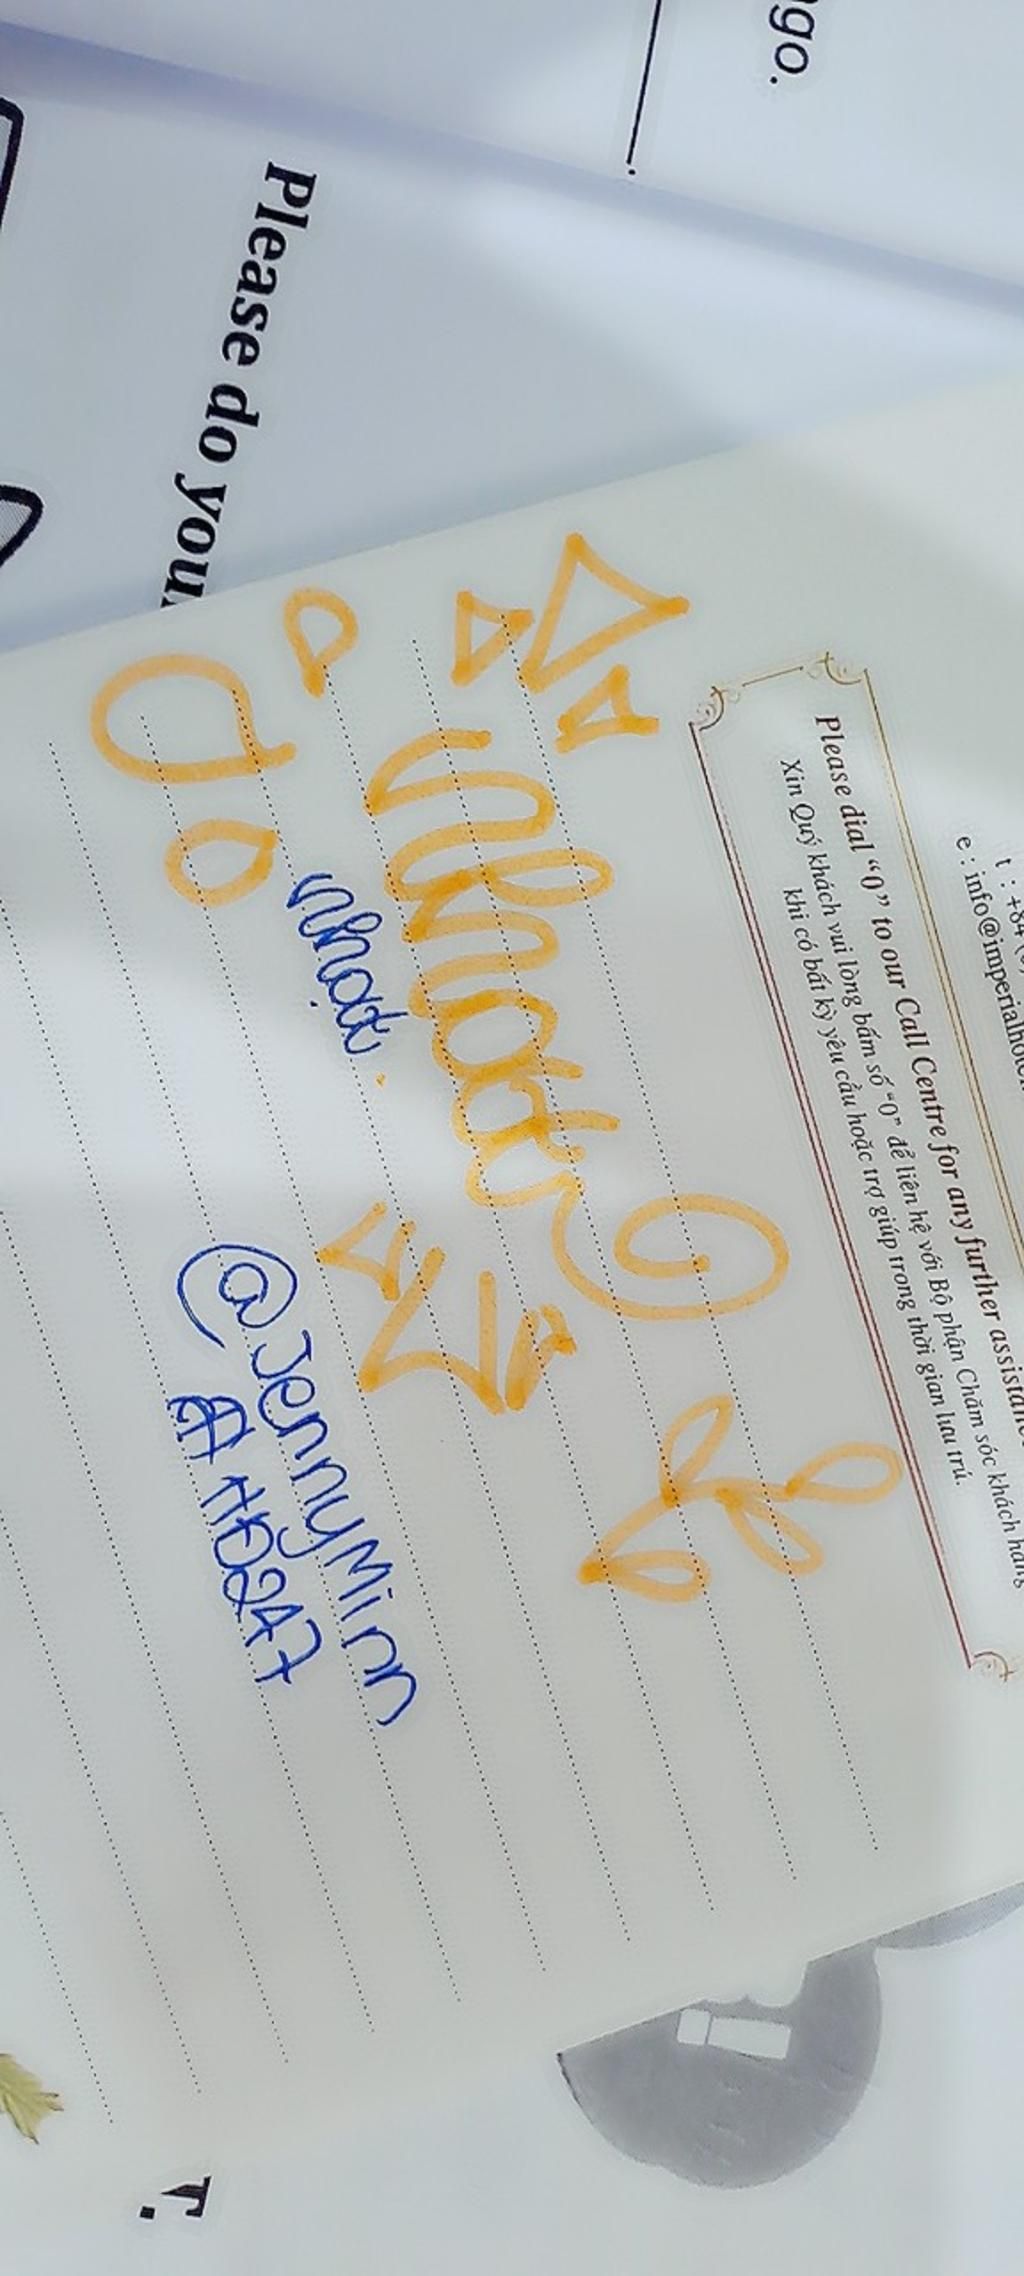 go.
Please do you
t : +84 (
e : info@imperialhotel
Please dial “0” to our Call Centre for any further assistance
Xin Quý khách vui lòng bấm số “0” để liên hệ với Bộ phận Chăm sóc khách hàng
khi có bất kỳ yêu cầu hoặc trợ giúp trong thời gian lưu trú.
Nhật
Nhật.
@JennyMinn
T.